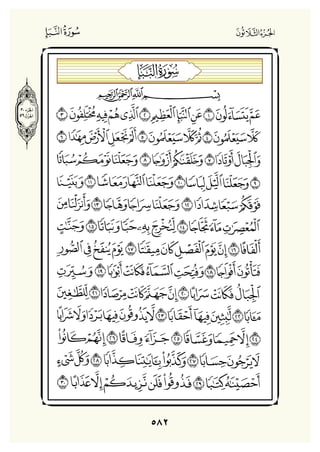 سُورَةُ النَّبَإِ
الجُزْءُ الثَّلَاثُونَ
سُورَةُ النَّبَإِ
بِسْمِ اللَّهِ الرَّحْمَٰنِ الرَّحِيمِ
عَمَّ يَتَسَاءَلُونَ ١ عَنِ النَّبَإِ الْعَظِيمِ ٢ الَّذِي هُمْ فِيهِ مُخْتَلِفُونَ ٣
كَلَّا سَيَعْلَمُونَ ٤ ثُمَّ كَلَّا سَيَعْلَمُونَ ٥ أَلَمْ نَجْعَلِ الْأَرْضَ مِهَادًا ٦
وَالْجِبَالَ أَوْتَادًا ٧ وَخَلَقْنَاكُمْ أَزْوَاجًا ٨ وَجَعَلْنَا نَوْمَكُمْ سُبَاتًا
٩ وَجَعَلْنَا اللَّيْلَ لِبَاسًا ١٠ وَجَعَلْنَا النَّهَارَ مَعَاشًا ١١ وَبَنَيْنَا
فَوْقَكُمْ سَبْعًا شِدَادًا ١٢ وَجَعَلْنَا سِرَاجًا وَهَّاجًا ١٣ وَأَنزَلْنَا مِنَ
الْمُعْصِرَاتِ مَاءً ثَجَّاجًا ١٤ لِّنُخْرِجَ بِهِ حَبًّا وَنَبَاتًا ١٥ وَجَنَّاتٍ
أَلْفَافًا ١٦ إِنَّ يَوْمَ الْفَصْلِ كَانَ مِيقَاتًا ١٧ يَوْمَ يُنفَخُ فِي الصُّورِ
فَتَأْتُونَ أَفْوَاجًا ١٨ وَفُتِحَتِ السَّمَاءُ فَكَانَتْ أَبْوَابًا ١٩ وَسُيِّرَتِ
الْجِبَالُ فَكَانَتْ سَرَابًا ٢٠ إِنَّ جَهَنَّمَ كَانَتْ مِرْصَادًا ٢١ لِّلطَّاغِينَ
مَآبًا ٢٢ لَّابِثِينَ فِيهَا أَحْقَابًا ٢٣ لَّا يَذُوقُونَ فِيهَا بَرْدًا وَلَا شَرَابًا
٢٤ إِلَّا حَمِيمًا وَغَسَّاقًا ٢٥ جَزَاءً وِفَاقًا ٢٦ إِنَّهُمْ كَانُوا
لَا يَرْجُونَ حِسَابًا ٢٧ وَكَذَّبُوا بِآيَاتِنَا كِذَّابًا ٢٨ وَكُلَّ شَيْءٍ
أَحْصَيْنَاهُ كِتَابًا ٢٩ فَذُوقُوا فَلَن نَّزِيدَكُمْ إِلَّا عَذَابًا ٣٠
٥٨٢